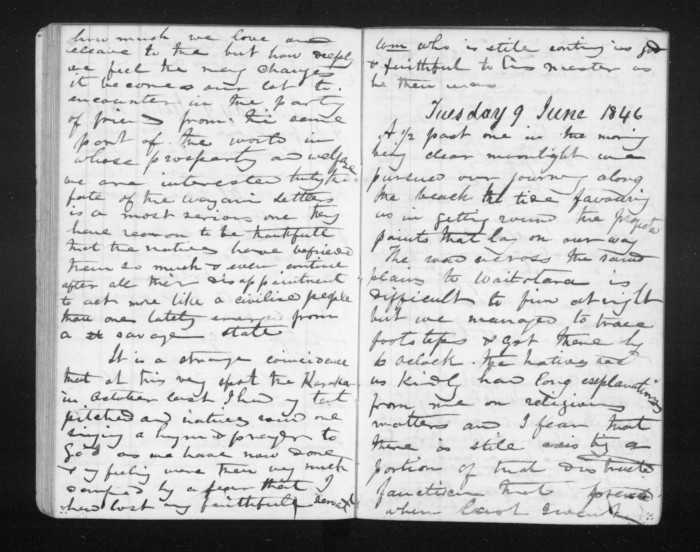 how much we love and
receive to the but how deeply
we feel the many changes
it becomes our lot to
encounter in the party
of friends from this same
part of the world in
whose prosperity and welfare
we are interested truly the
fate of the Wayani settlers
is a most serious one they
have reason to be thankfull
that the natives have befriended
them so much & even continue
after all their disappointment
to act more like a civilised people
than one lately emerged from
a savage state
It is a strange coincidence
that at this very spot the Karaka
in October last I had my tent
pitched and natives round me
singing a hymn & prayer to
God as we have now done
& my feelings were then very much
damped by a fear that I
had lost my faithful servant
Wm who is still continuing good
& faithful to his master as
he then was
Tuesday 9 June 1846
At ½ past one in the morning
being clear moonlight we
pursued our journey along
the beach the tide favouring
us in getting round the
points that lay on our way
The road across the sand
plains to Waitotara is
difficult to find at night
but we managed to trace
footsteps & got there by
6 oclock. The natives are
as kind had long explanations
from me on religious
matters and I fear that
there is still existing a
portion of that
fanaticism that
when last